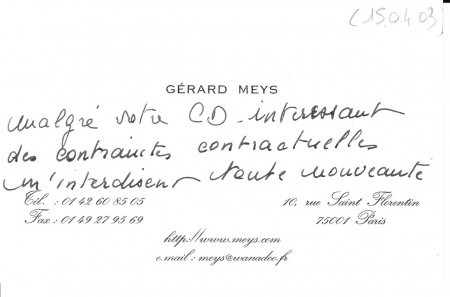 (15.04 03)
GÉRARD MEYS
malgré votre CD intéressant
des contraintes contractuelles
m'interdisent toute nouveauté
Tél. : 01 42 60 85 05
10, rue Saint Florentin
Fax : 01 49 27 95 69
75001 Paris
http://www.meys.com
e.mail : meys@wanadoo.fr